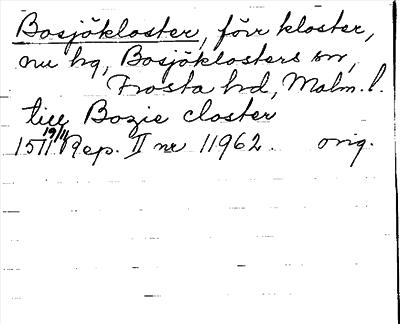 Bosjökloster, förr kloster,
nu hg, Bosjöklosters sn,
Frosta hd, Malm. l.
till Bozie closter
1511 19/11 Rep. II nr 11962. orig.